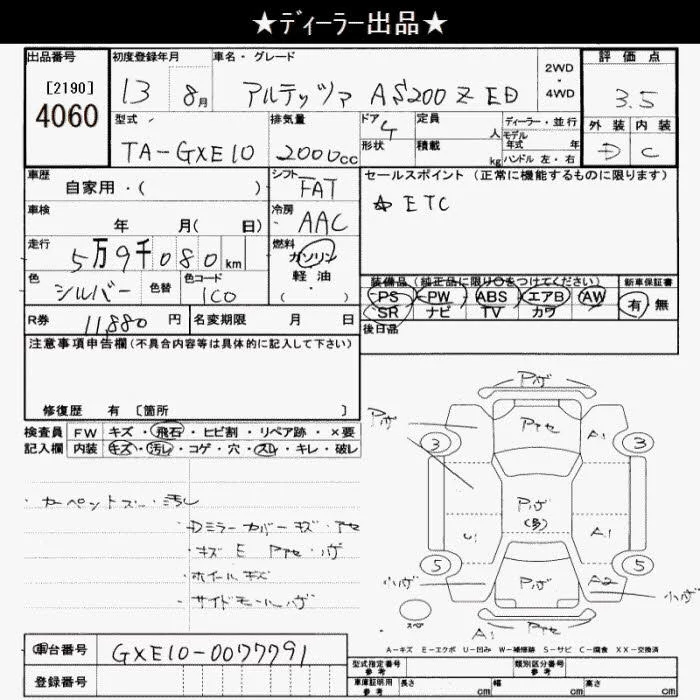 ★ディーラー出品★
出品番号 初度登録年月 車名・グレード 2WD・4WD 評価点
[2190] 4060 13 8月 アルテッツァ AS200 Z ED 3.5
型式 排気量 ドア 4 定員 人 ディーラー・並行 外装 内装
TA-GXE10 2000cc 形状 積載 kg モデル年式 年 D C
ハンドル 左・右
車歴 シフト セールスポイント (正常に機能するものに限ります)
自家用・( ) FAT ☆ ETC
車検 冷房
年 月( 日) AAC
走行 燃料
5万9千080km ガソリン
軽油
( ・ )
色 シルバー 色替 色コード 1C0
装備品 (純正品に限り○をつけてください) 新車保証書
PS PW ABS エアB AW 有・無
SR ナビ TV カワ
R券 11,880 円 名変期限 月 日 後日品
注意事項申告欄(不具合内容等は具体的に記入して下さい)
修復歴 有 [箇所 ]
検査員 FW キズ・飛石・ヒビ割・リペア跡・×要
記入欄 内装 キズ・汚レ・コゲ・穴・スレ・キレ・破レ
・カーペットズレ・汚レ
・Dミラーカバーキズ・アセ
・キズ E Pアセ・ハゲ
・ホイールキズ
・サイドモールハゲ
Pハゲ
Pハゲ Pアセ A1
3 3
Pハゲ
U1 A1
5 5
小ハゲ Pハゲ A2 小ハゲ
A1 Pアセ
A-キズ E-エクボ U-凹み W-補修跡 S-サビ C-腐食 XX-交換済
車台番号 GXE10-0077791
登録番号
型式指定番号 参考 類別区分番号 参考
車庫証明用 参考 長さ cm 幅 cm 高さ cm